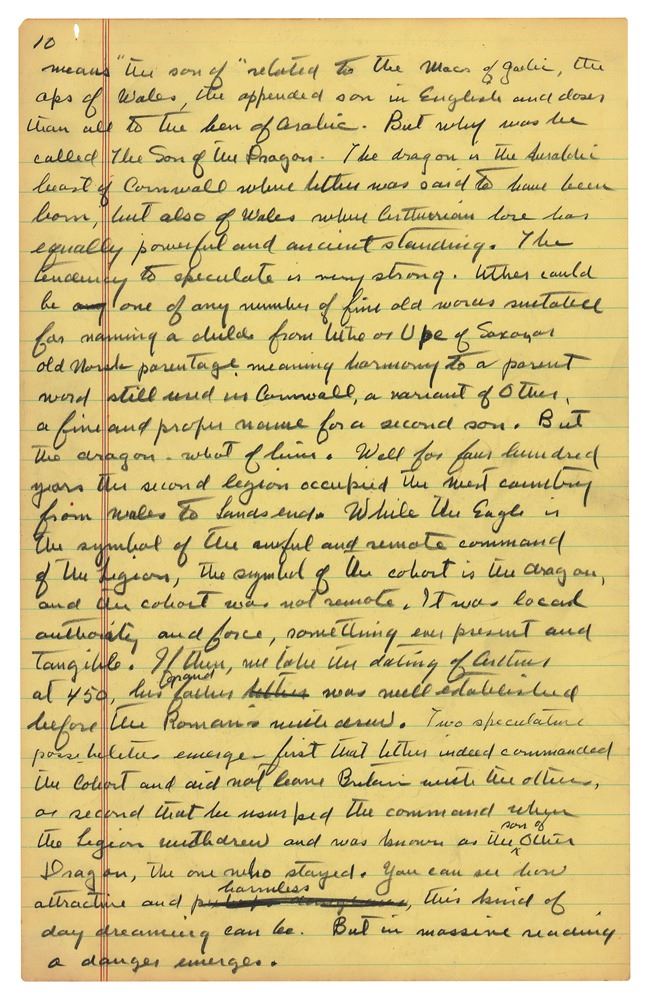 10
means "the son of" related to the Macs of Gaelic, the
aps of Wales, the appended son in English and closer
than all to the ben of Arabic. But why was he
called The Son of the Dragon. The dragon is the heraldic
beast of Cornwall where Uther was said to have been
born, but also of Wales where Arthurian lore has
equally powerful and ancient standing. The
tendency to speculate is very strong. Uther could
be any one of any number of fine old words suitable
for naming a child from Uthe or Upe of Saxon or
old Norse parentage meaning harmony to a parent
word still used in Cornwall, a variant of Other,
a fine and proper name for a second son. But
the dragon - what of him. Well for four hundred
years the second legion occupied the west country
from Wales to Lands end. While the Eagle is
the symbol of the awful and remote command
of the Legion, the symbol of the cohort is the dragon,
and the cohort was not remote. It was local
authority and force, something ever present and
tangible. If then, we take the dating of Arthur
at 450, his grand father Uther was well established
before the Romans withdrew. Two speculative
possibilities emerge - first that Uther indeed commanded
the Cohort and did not leave Britain with the others,
or second that he usurped the command when
the Legion withdrew and was known as the son of Other
Dragon, the one who stayed. You can see how
attractive and harmless, this kind of
day dreaming can be. But in massive reading
a danger emerges.